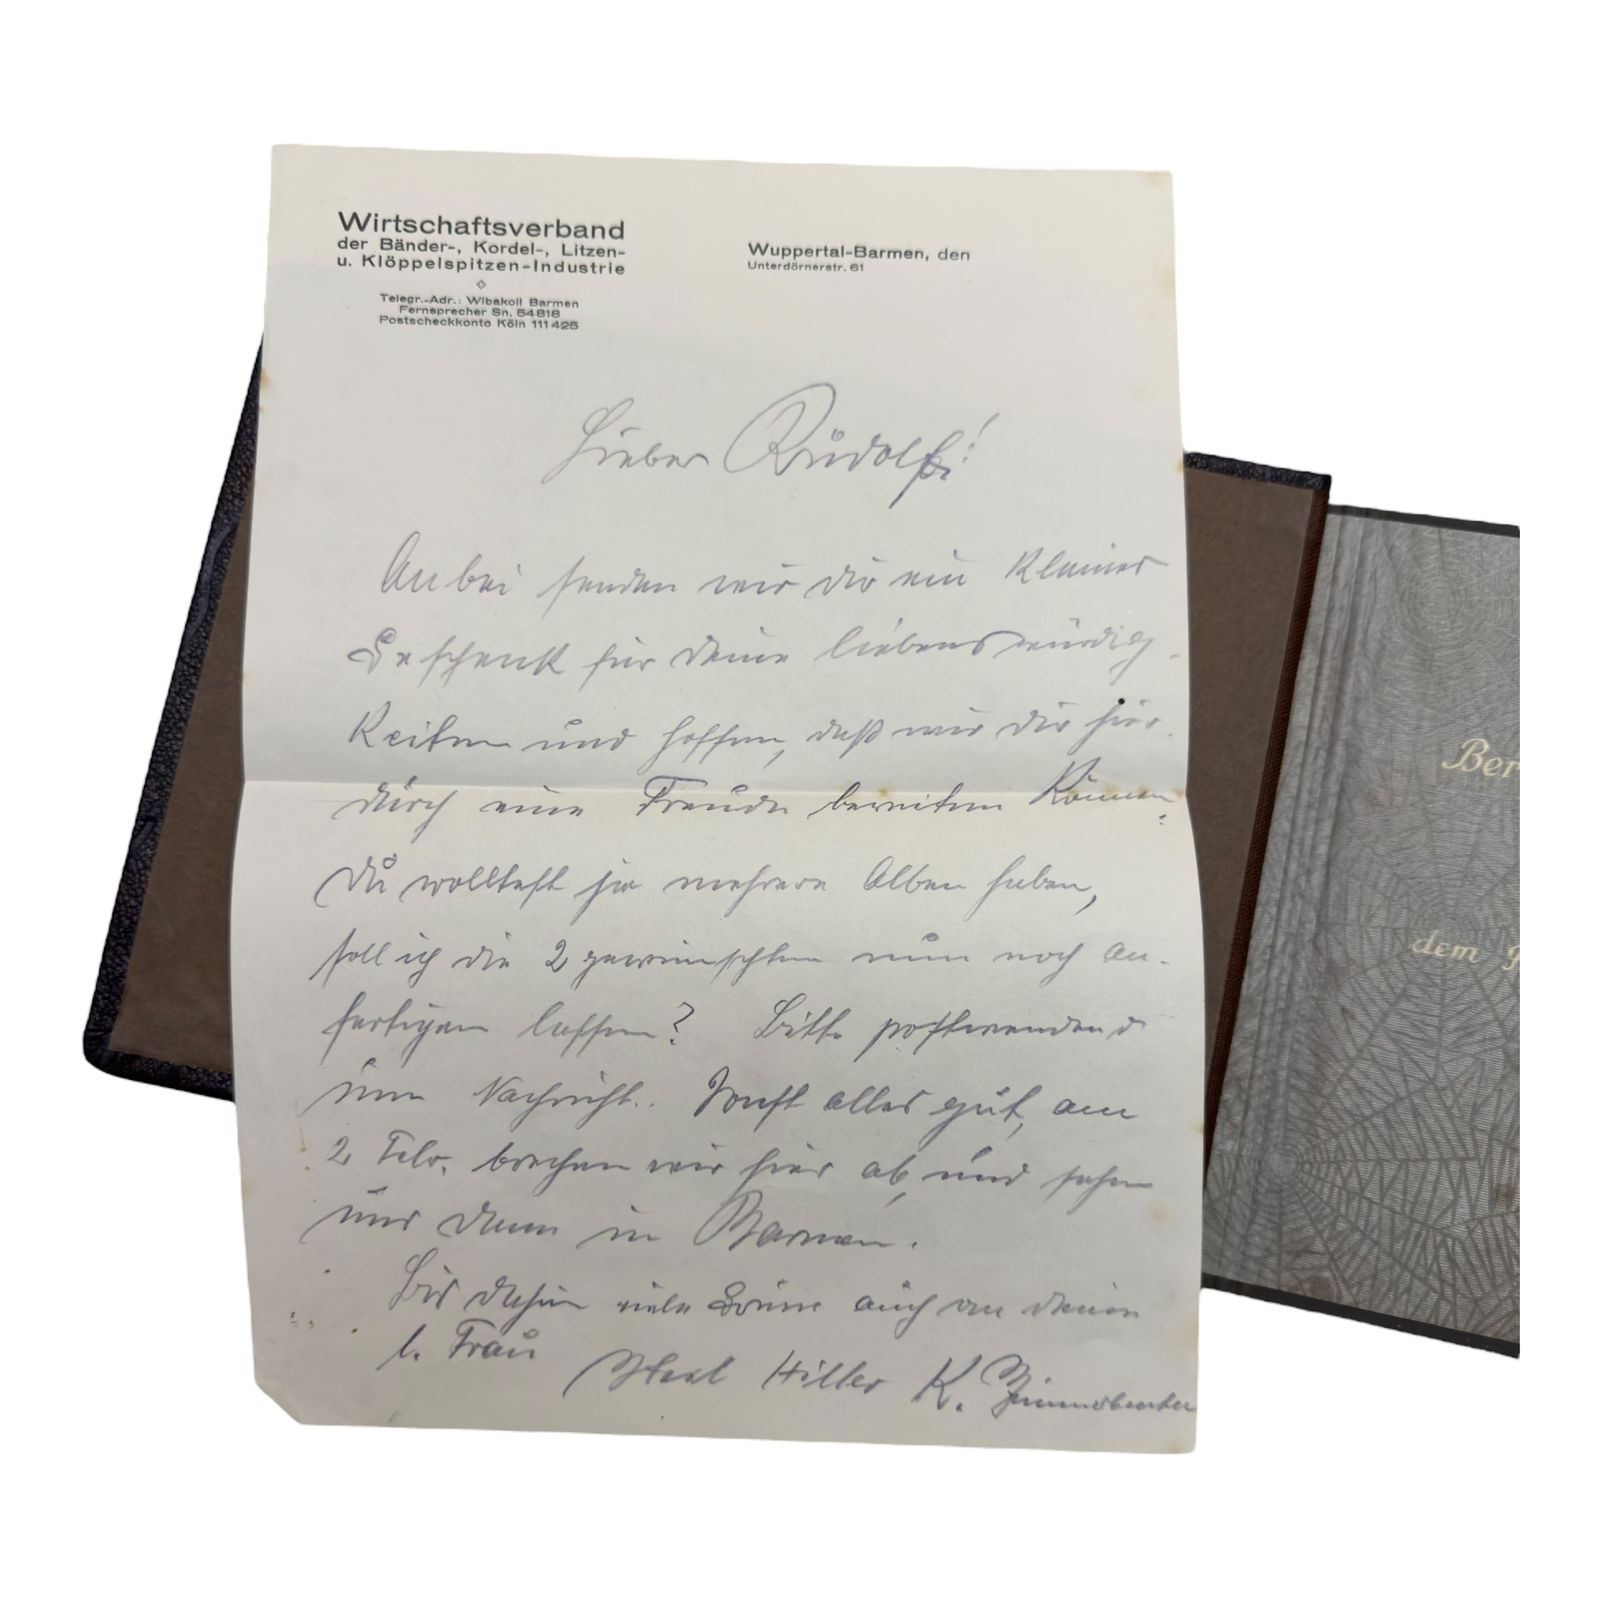 Wirtschaftsverband
der Bänder-, Kordel-, Litzen-
u. Klöppelspitzen-Industrie
Telegr.-Adr.: Wibakoll Barmen
Fernsprecher Sn. 54818
Postscheckkonto Köln 111425
Wuppertal-Barmen, den
Unterdörnerstr. 61
Lieber Rudolf!
Anbei senden wir dir ein kleines
Geschenk für deine liebenswürdig-
keiten und hoffen, daß wir dir hier-
durch eine Freude bereiten können.
Du wolltest ja mehrere Alben haben,
soll ich die 2 gewünschten nun noch an-
fertigen lassen? Bitte postwendend
um Nachricht. Sonst alles gut, am
2 Febr. brechen wir hier ab, und sehen
uns dann in Barmen.
Bis dahin viele Grüße auch an deine
l. Frau
Heil Hitler K.
Ber
dem